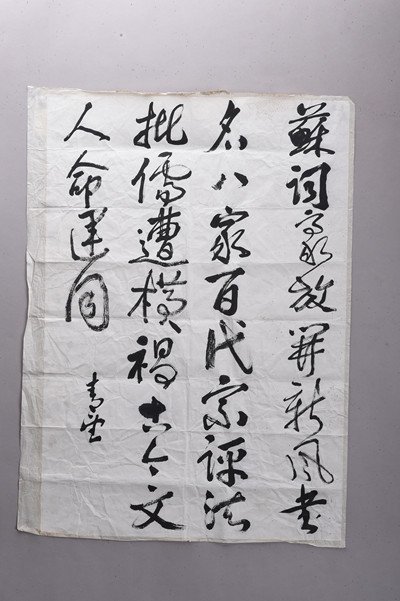 蘇詞豪放開新風書
名八家百代宗評法
批儒遭横禍古今文
人命運同